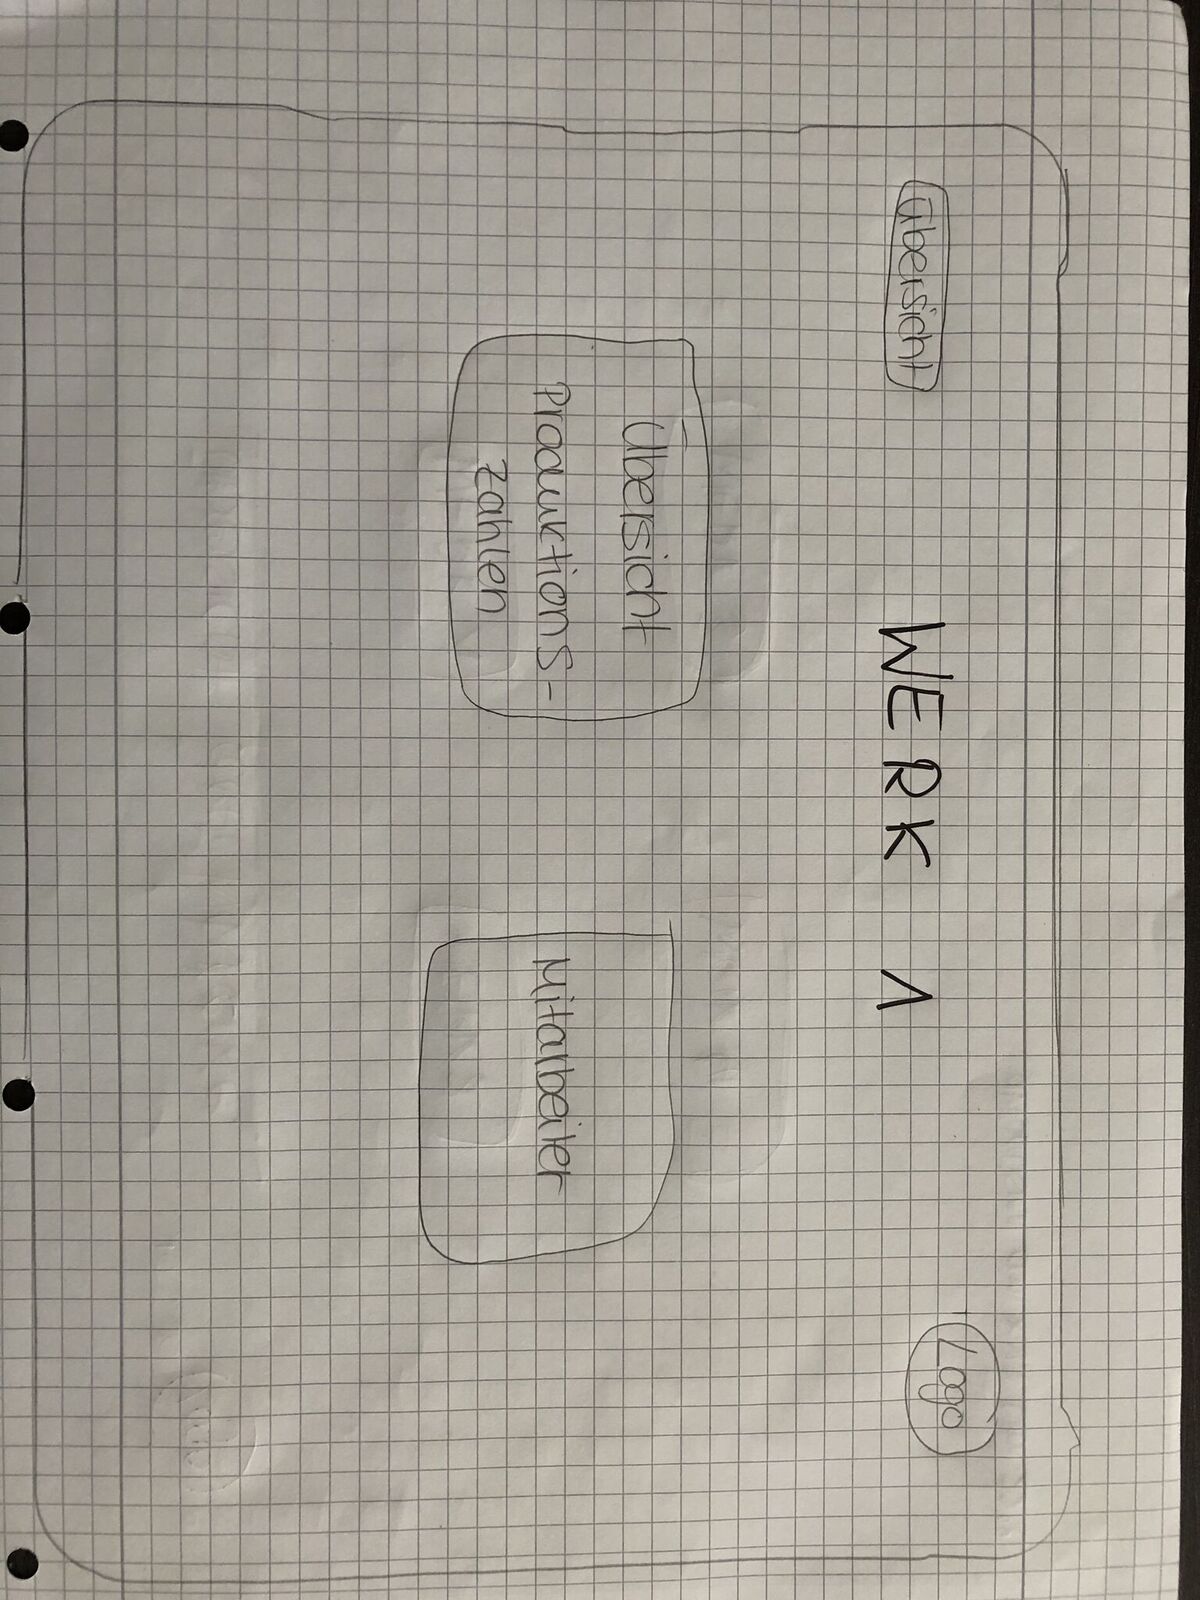 Übersicht
WERK 1
Logo
Übersicht
Produktions-
zahlen
Mitarbeiter